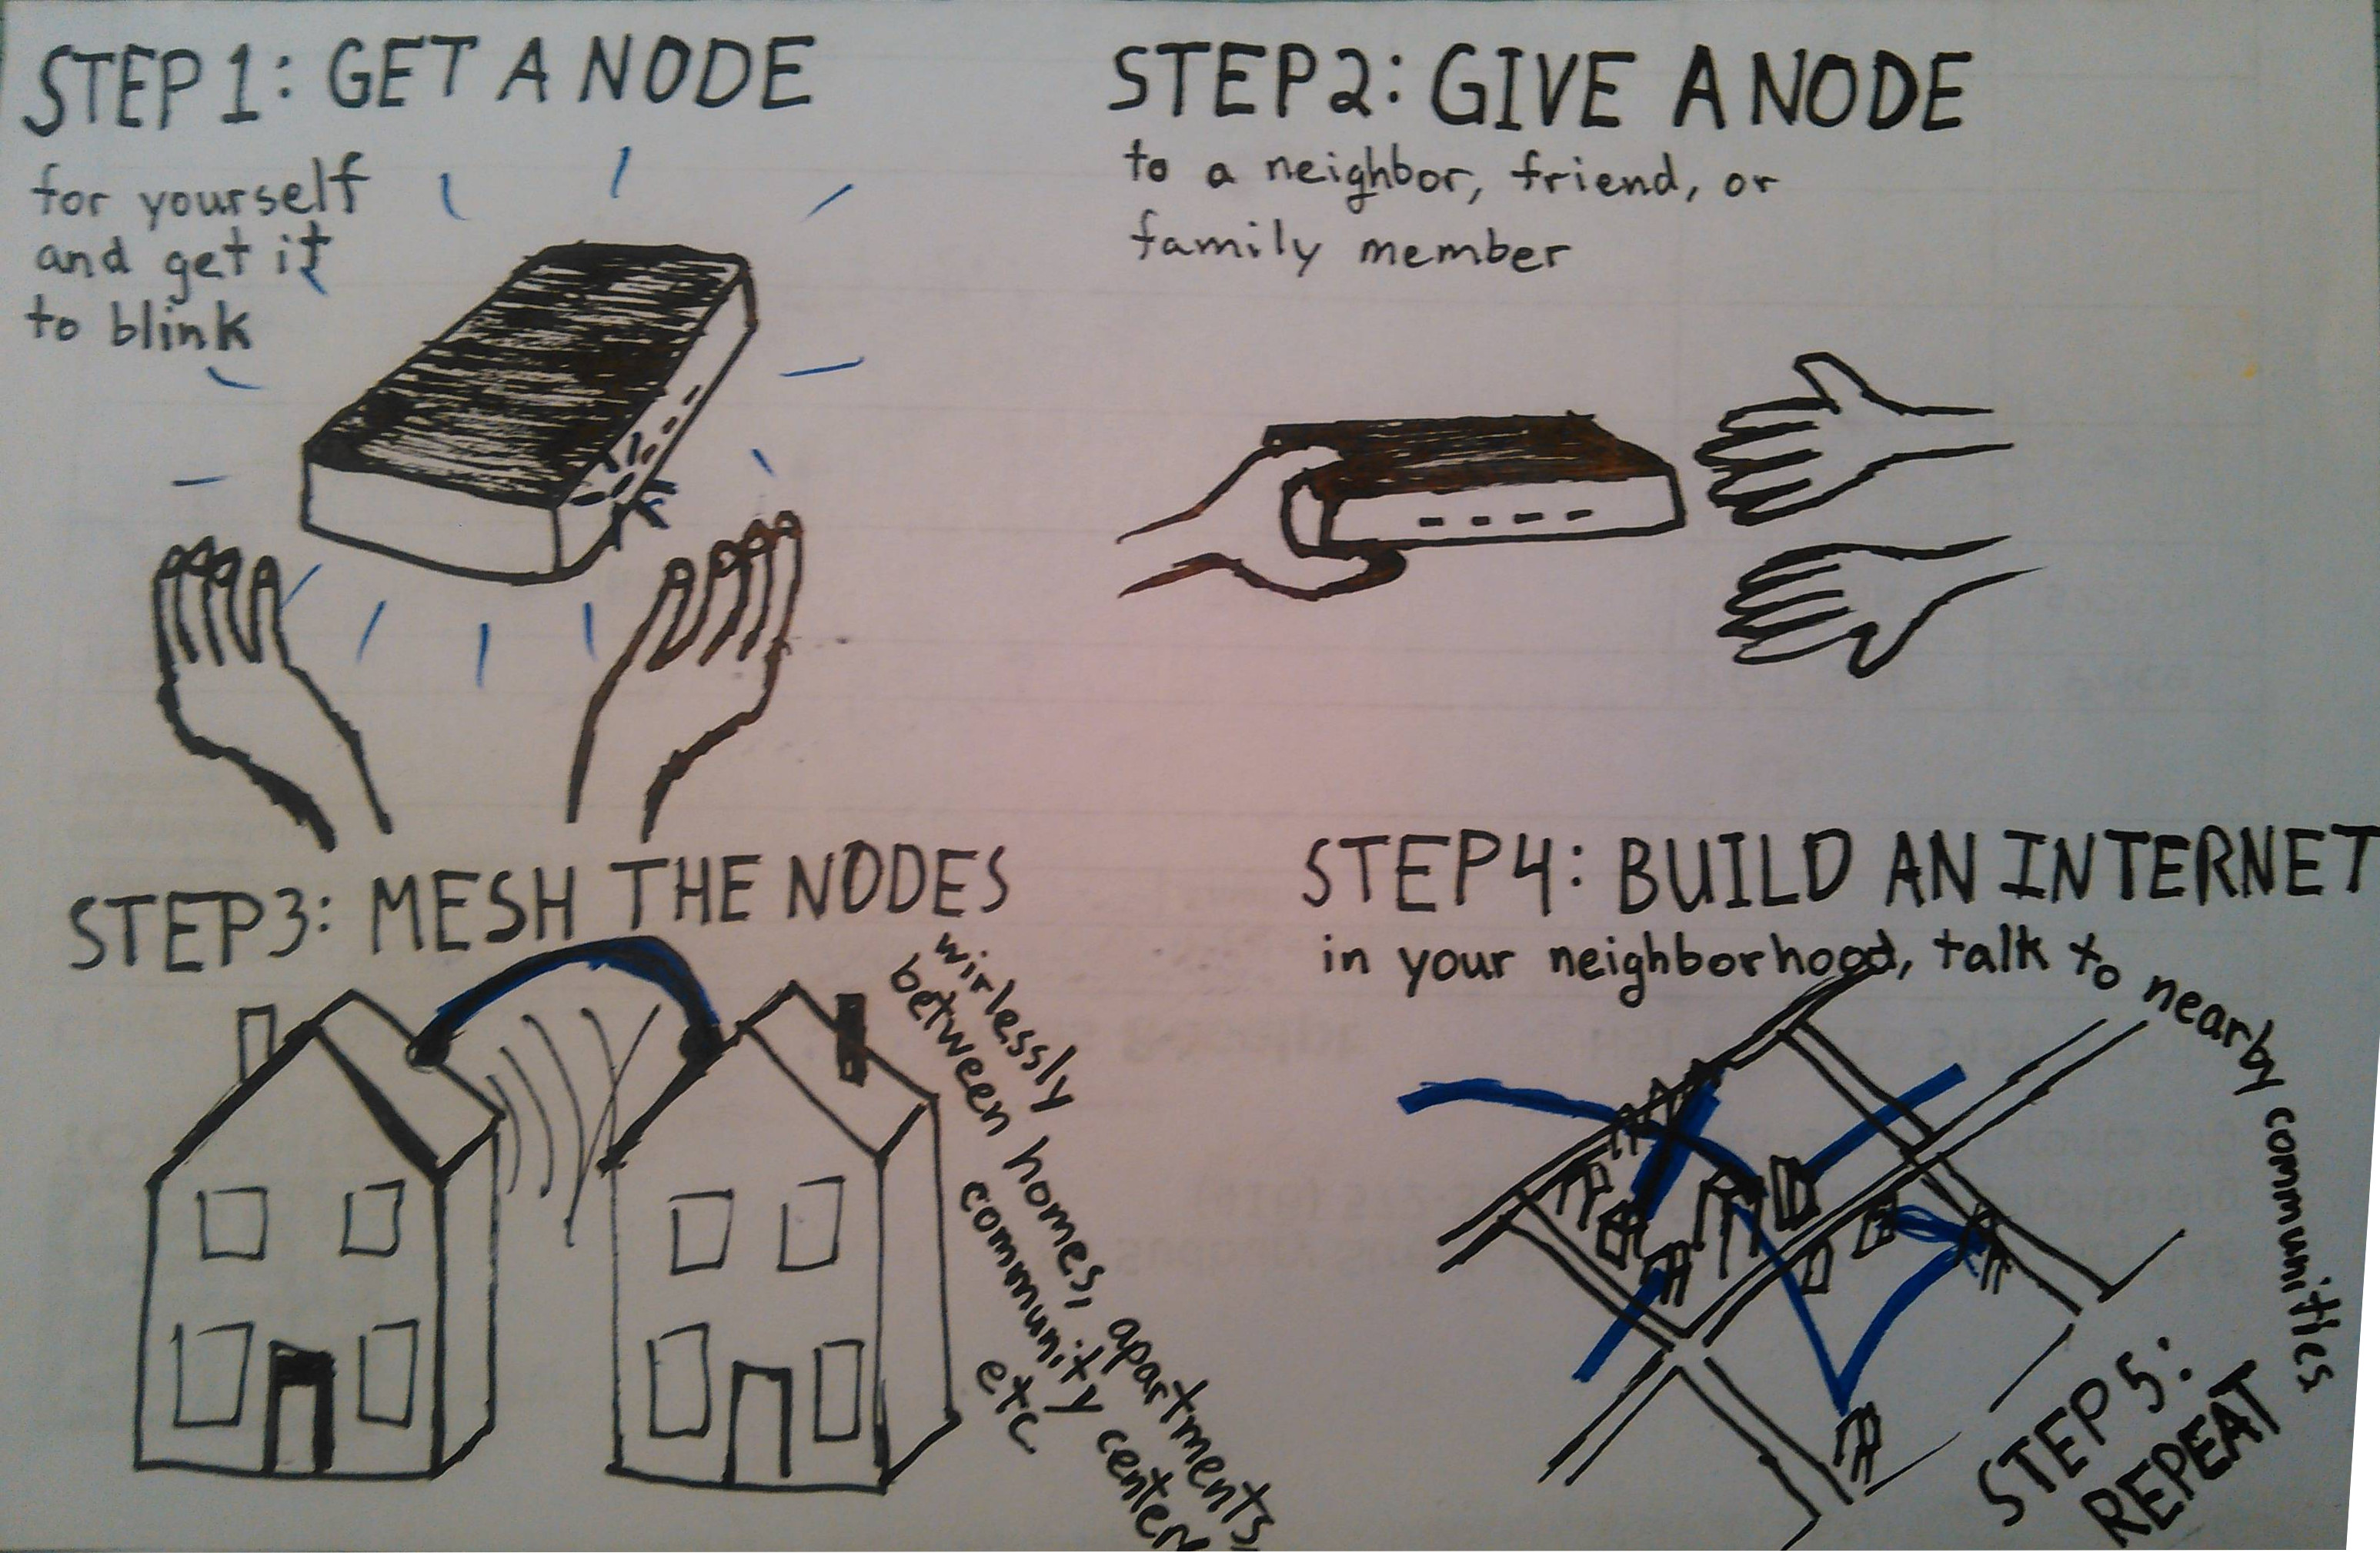 STEP 1: GET A NODE
for yourself
and get it
to blink
STEP 2: GIVE A NODE
to a neighbor, friend, or
family member
STEP 3: MESH THE NODES
wirlessly
between homes, apartments,
community center
etc
STEP 4: BUILD AN INTERNET
in your neighborhood, talk to nearby communities
STEP 5:
REPEAT